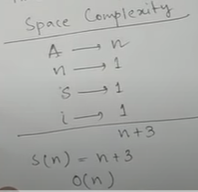 Space Complexity
A → n
n → 1
s → 1
i → 1
n+3
S(n) = n+3
O(n)